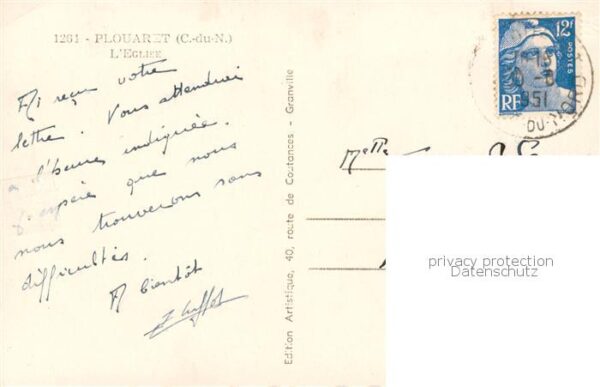 1261 - PLOUARET (C.-du-N.)
L'EGLISE
Ai reçu votre
lettre. Vous attendrai
à l'heure indiquée.
J'espère que nous
nous trouverons sans
difficultés.
A bientôt
Edition Artistique, 40, route de Coutances - Granville
12F
POSTES
RF
951
DU-NORD
Melle
privacy protection
Datenschutz